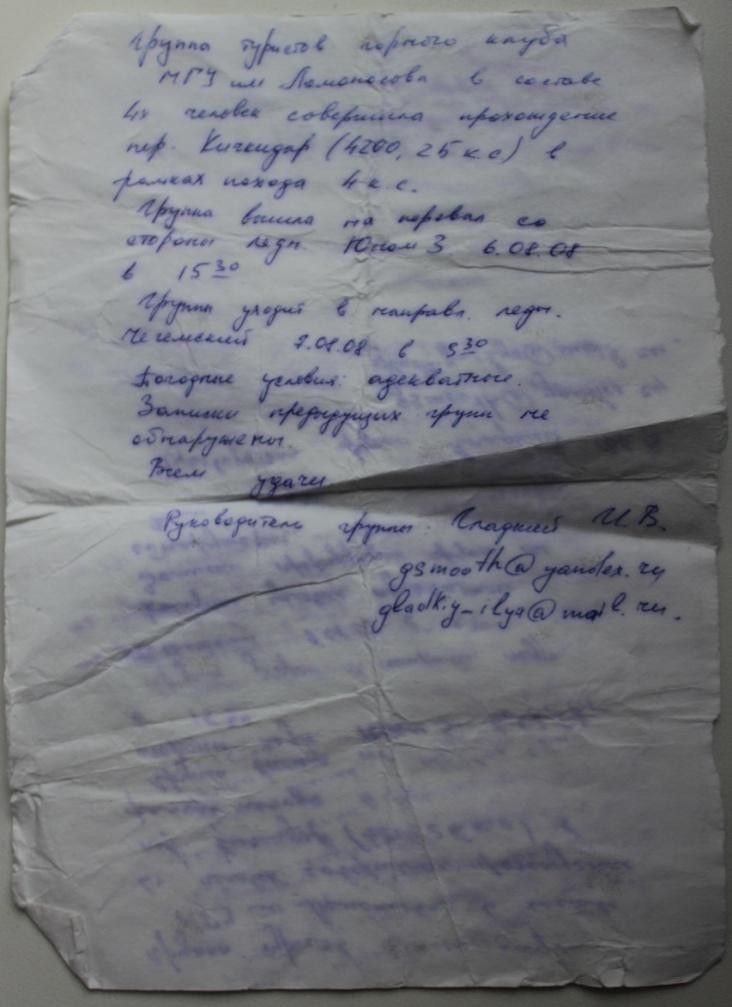 Группа туристов горного клуба
МГУ им Ломоносова в составе
4х человек совершила прохождение
пер. Кичкидар (4200, 2Б к с) в
рамках похода 4 к. с.
Группа вышла на перевал со
стороны ледн. Юном 3 6.08.08
в 15 30
Группа уходит в направл. ледн.
Чегемский 7.08.08 в 5 30
Погодные условия: адекватные.
Записки предыдущих групп не
обнаружены.
Всем удачи
Руководитель группы. Гладкий И. В.
gsmooth@yandex.ru
gladkiy_ilya@mail.ru.